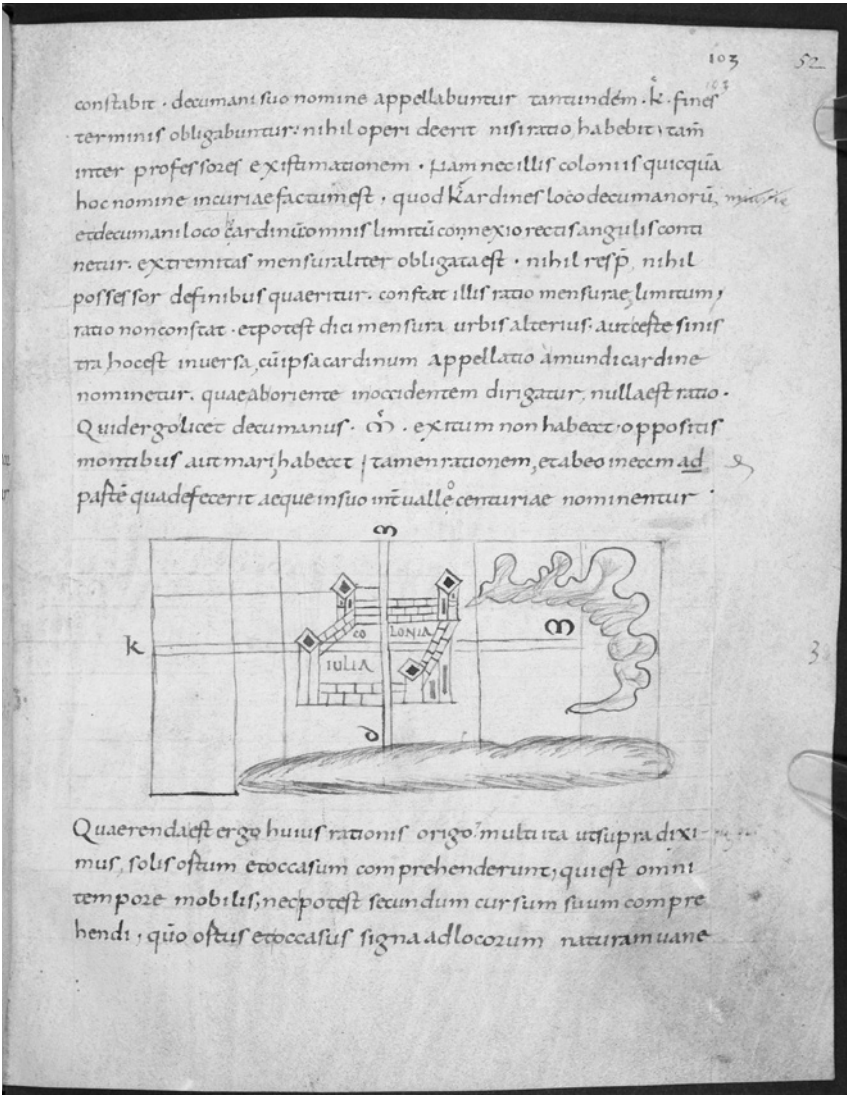 103 52
103
constabit · decumani suo nomine appellabuntur tantundem · k̊ · fines
terminis obligabuntur · nihil operi deerit nisi ratio, habebit tam̄
inter professores existimationem · Nam nec illis coloniis quicquā
hoc nomine incuriae factum est, quod kardines loco decumanorū,
et decumani loco cardinū omnis limitū connexio rectis angulis conti
netur · extremitas mensuraliter obligata est · nihil resp̄, nihil
possessor de finibus quaeritur · constat illis ratio mensurae, limitum,
ratio non constat · et potest dici mensura urbis alterius · aut ceste sinis
tra hoc est inversa, cū ipsa cardinum appellatio a mundi cardine
nominetur · quae ab oriente in occidentem dirigatur, nulla est ratio ·
Quid ergo licet decumanus · m̊ · exitum non habeat · oppositis
montibus aut mari, habeat tamen rationem, et ab eo in ecem ad
pastē qua defecerit aeque in suo int̄uallo centuriae nominentur ·
m
k
co LONIA
m
IULIA
d
3
Quaerenda est ergo huius rationis origo · multi ita ut supra dixi-
mus, solis ostum et occasum comprehenderunt, qui est omni
tempore mobilis, nec potest secundum cursum suum compre
hendi, quō ostus et occasus signa ad locorum naturam uane